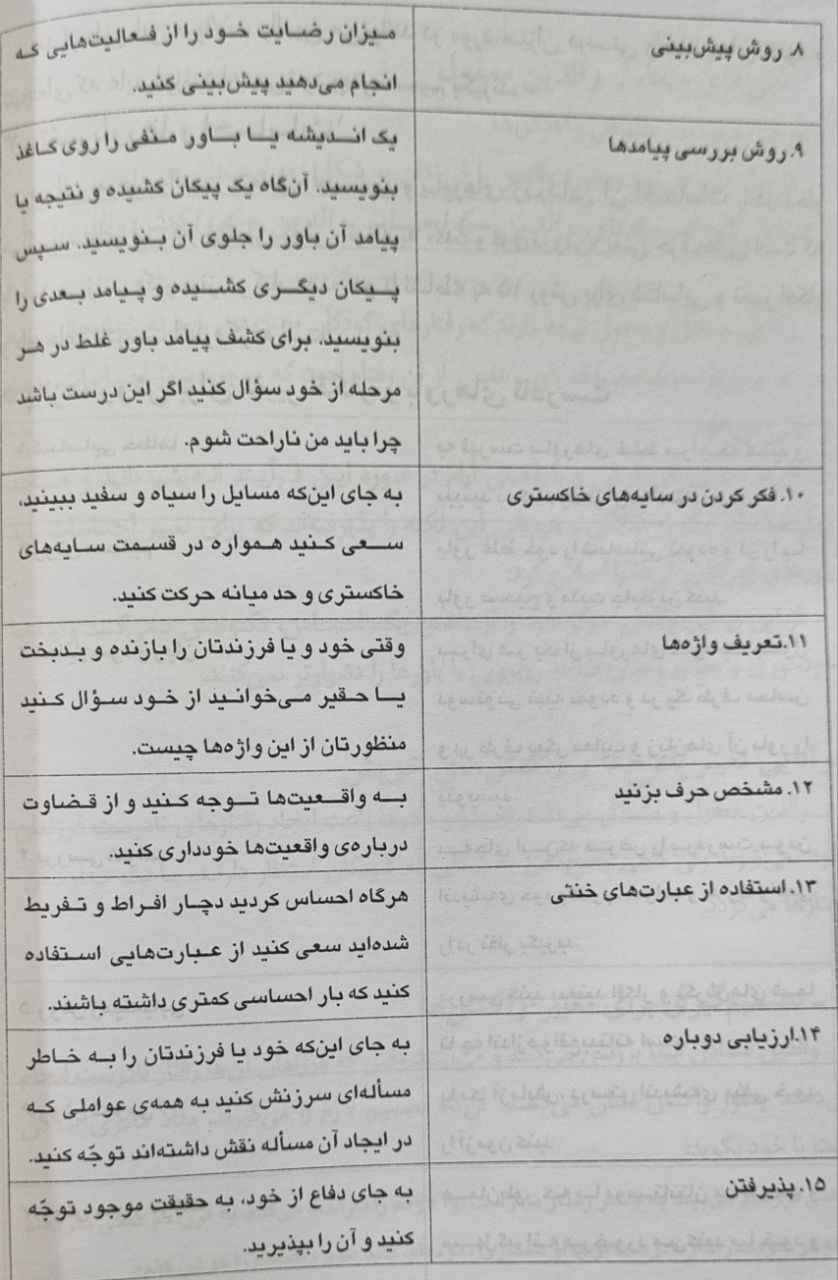 ۸. روش پیش‌بینی
میزان رضایت خود را از فعالیت‌هایی که
انجام می‌دهید پیش‌بینی کنید.
۹. روش بررسی پیامدها
یک اندیشه یا باور منفی را روی کاغذ
بنویسید. آن‌گاه یک پیکان کشیده و نتیجه یا
پیامد آن باور را جلوی آن بنویسید. سپس
پیکان دیگری کشیده و پیامد بعدی را
بنویسید. برای کشف پیامد باور غلط در هر
مرحله از خود سؤال کنید اگر این درست باشد
چرا باید من ناراحت شوم.
۱۰. فکر کردن در سایه‌های خاکستری
به جای این‌که مسایل را سیاه و سفید ببینید،
سعی کنید همواره در قسمت سایه‌های
خاکستری و حد میانه حرکت کنید.
۱۱. تعریف واژه‌ها
وقتی خود و یا فرزندتان را بازنده و بدبخت
یا حقیر می‌خوانید از خود سؤال کنید
منظورتان از این واژه‌ها چیست.
۱۲. مشخص حرف بزنید
به واقعیت‌ها توجه کنید و از قضاوت
درباره‌ی واقعیت‌ها خودداری کنید.
۱۳. استفاده از عبارت‌های خنثی
هرگاه احساس کردید دچار افراط و تفریط
شده‌اید سعی کنید از عبارت‌هایی استفاده
کنید که بار احساسی کمتری داشته باشند.
۱۴. ارزیابی دوباره
به جای این‌که خود یا فرزندتان را به خاطر
مسأله‌ای سرزنش کنید به همه‌ی عواملی که
در ایجاد آن مسأله نقش داشته‌اند توجّه کنید.
۱۵. پذیرفتن
به جای دفاع از خود، به حقیقت موجود توجّه
کنید و آن را بپذیرید.